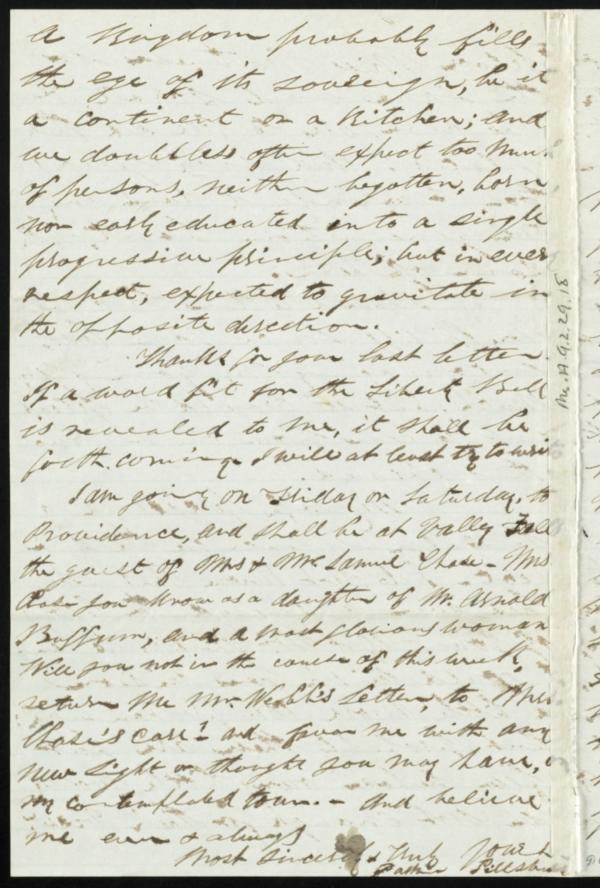 A Kingdom probably fills
the eye of its sovereign, be it
a continent or a Kitchen; and
we doubtless often expect too
of persons, neither begotten, born
nor early educated into a single
progressive principle; but in every
respect, expected to gravitate in
the opposite direction.
Thanks for your last letter.
If a word fit for the Liberty Bell
is revealed to me, it shall be
forth coming. I will at least try to
I am going on Friday or Saturday, to
Providence, and shall be at Valley Falls
the guest of Mrs & Mr. Samuel Chase - Mrs
Chase you know as a daughter of Mr. Arnold
Buffum, and a most glorious woman
Will you not in the course of this week,
return me Mr. Webb's Letter, to Mrs
Chase's care? and favor me with any
new light or thought you may have,
my contemplated tour. - And believe
me ever & always
Most Sincerely & Yours
Parker Pillsbury
Ms. A. 9. 2. 29. 18